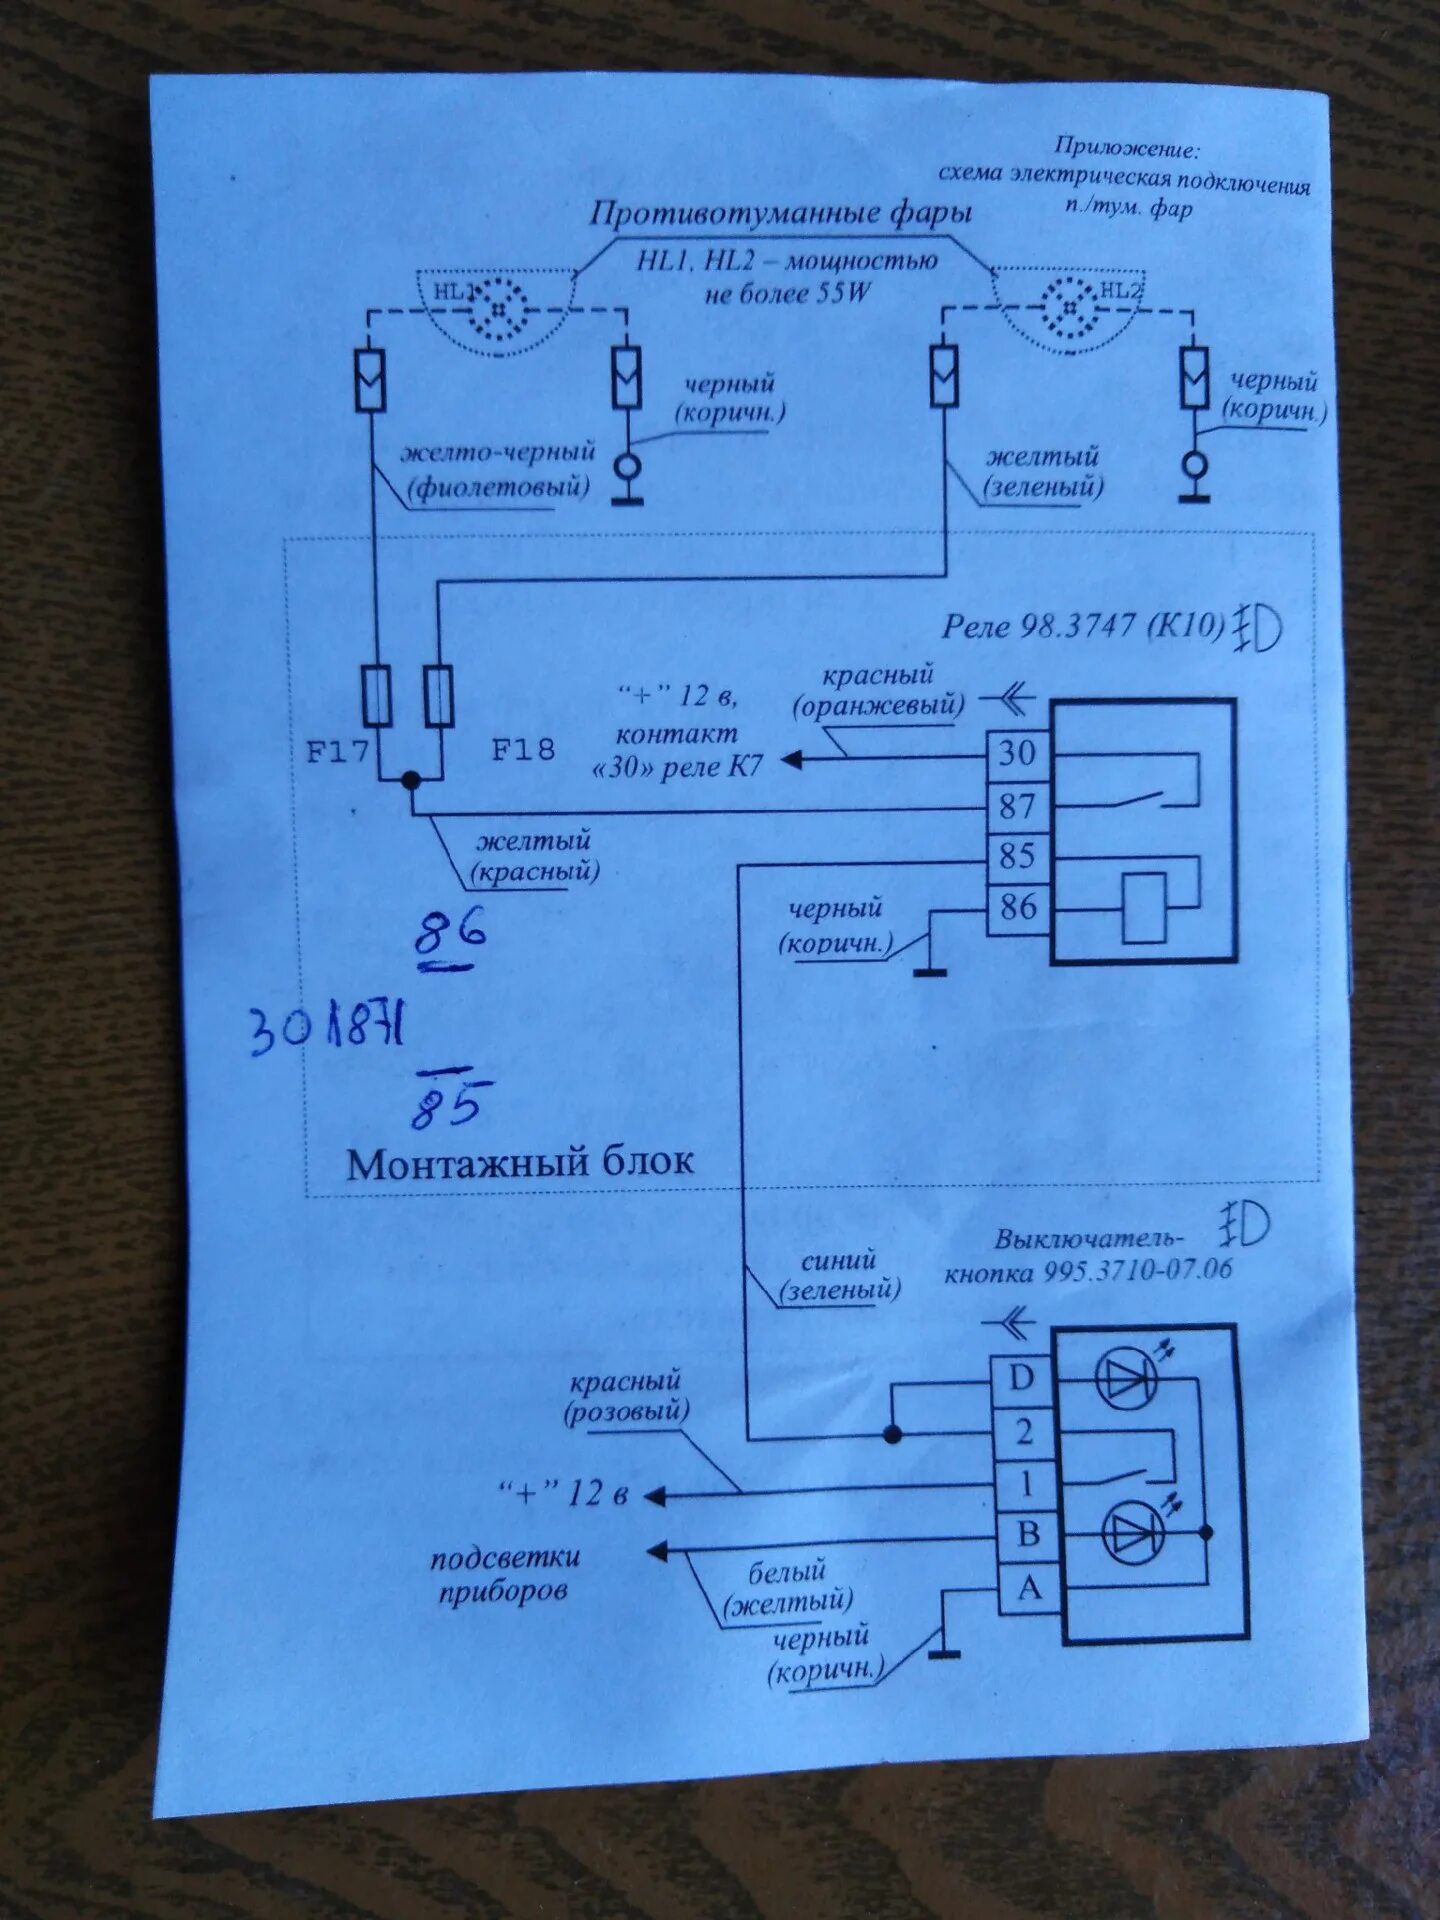 Приложение:
схема электрическая подключения
п./тум. фар
Противотуманные фары
HL1, HL2 – мощностью
не более 55W
HL1
HL2
черный
(коричн.)
черный
(коричн.)
желто-черный
(фиолетовый)
желтый
(зеленый)
Реле 98.3747 (К10)
красный
(оранжевый)
“+” 12 в,
контакт
«30» реле К7
F17
F18
30
87
85
86
желтый
(красный)
черный
(коричн.)
86
30 | 87 |
85
Монтажный блок
Выключатель-
кнопка 995.3710-07.06
синий
(зеленый)
красный
(розовый)
D
2
1
B
A
“+” 12 в
подсветки
приборов
белый
(желтый)
черный
(коричн.)